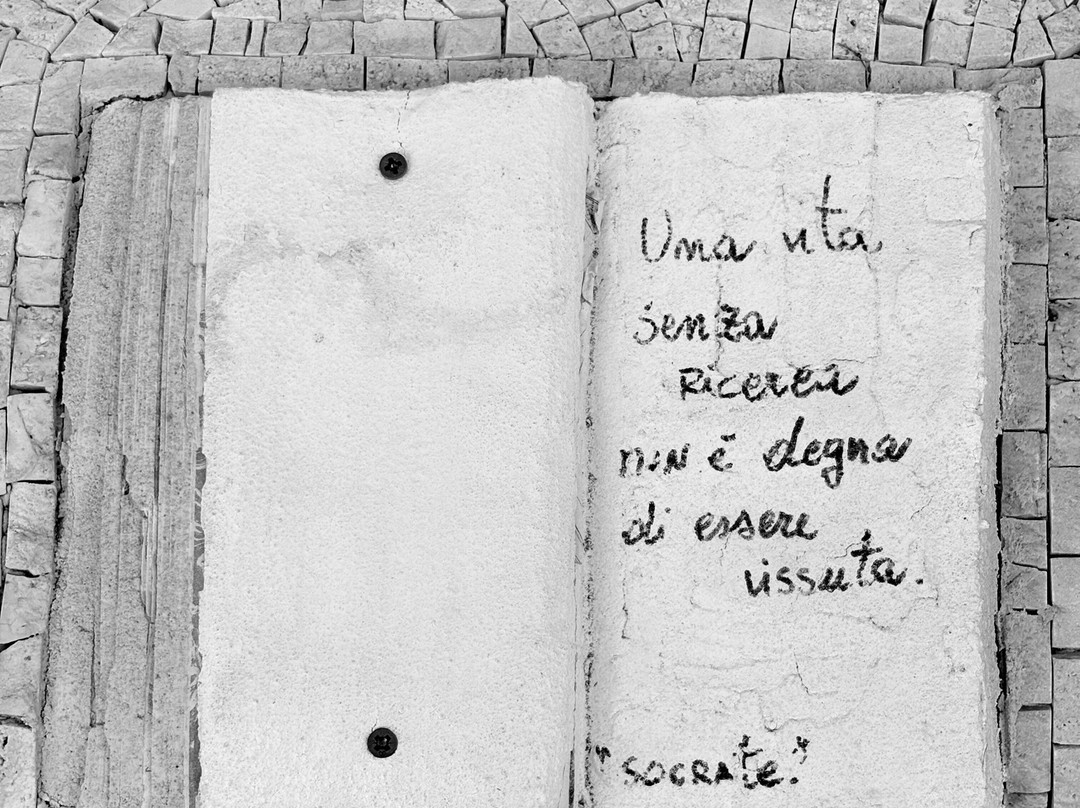 Una vita
senza
Ricerca
non è degna
di essere
vissuta.
"SOCRAte."